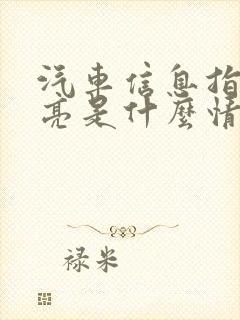 汽車信息指
亮是什麼情
禄米